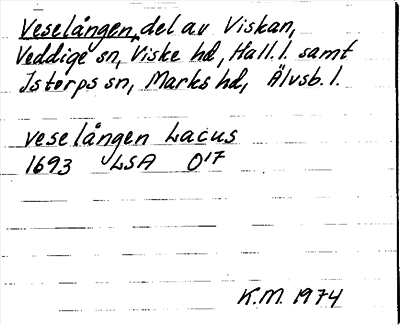 Veselången, del av Viskan,
Veddige sn, Viske hd, Hall. l. samt
Istorps sn, Marks hd, Älvsb. l.
veselången Lacus
1693 LSA O17
K.M. 1974